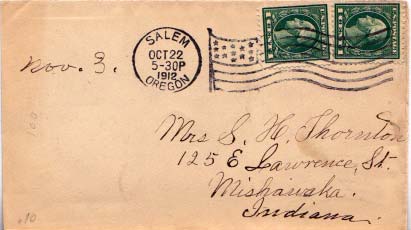 SALEM
OCT 22
5-30P
1912
OREGON
Nov. 3.
Mrs S. H. Thornton
125 E Lawrence, St.
Mishawaka.
Indiana.